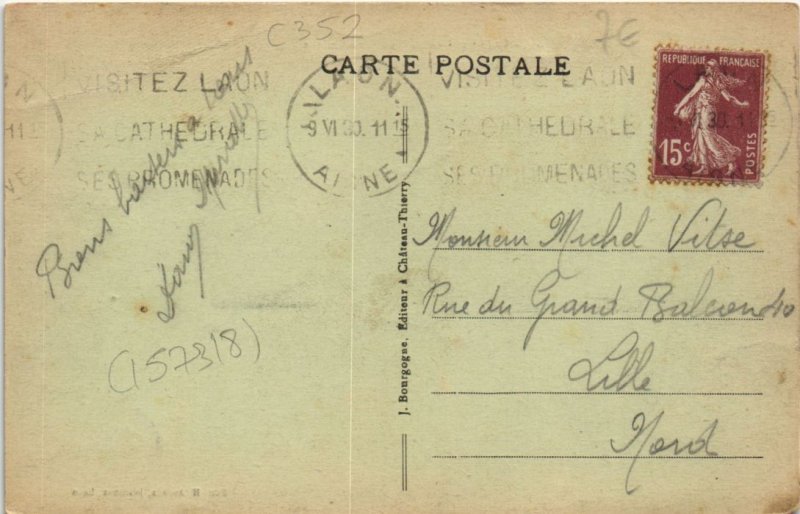 C352
7€
CARTE POSTALE
VISITEZ LAON
SA CATHEDRALE
SES PROMENADES
LAON
9 VI 30. 11 15
AISNE
VISITEZ LAON
SA CATHEDRALE
SES PROMENADES
REPUBLIQUE FRANÇAISE
15c
POSTES
Biens à tous
(157318)
J. Bourgogne, Éditeur à Château-Thierry
Monsieur Michel Vitse
Rue du Grand Balcon 40
Lille
Nord